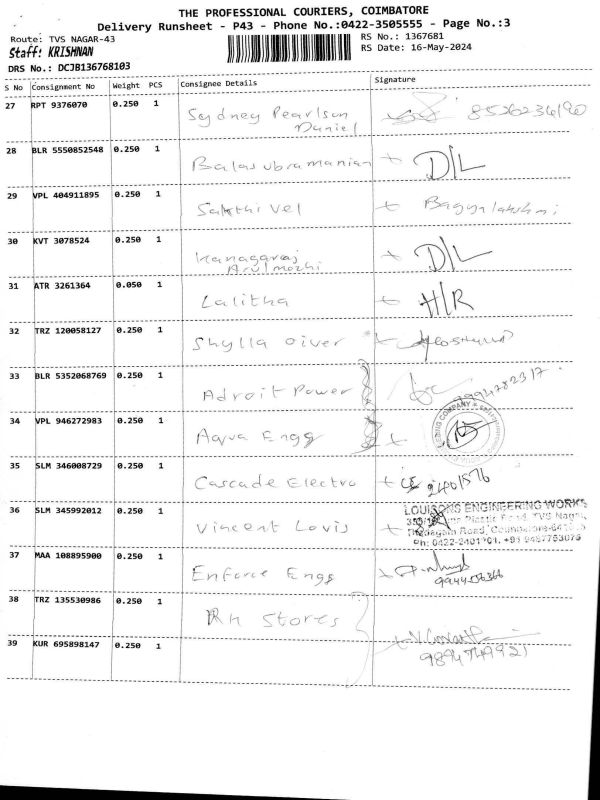 THE PROFESSIONAL COURIERS, COIMBATORE
Delivery Runsheet - P43 - Phone No.:0422-3505555 - Page No.:3
Route: TVS NAGAR-43
RS No.: 1367681
Staff: KRISHNAN
RS Date: 16-May-2024
DRS No.: DCJB136768103
S No Consignment No Weight PCS Consignee Details Signature
27 RPT 9376070 0.250 1 Sydney Pearlson Daniel 8526236190
28 BLR 5550852548 0.250 1 Balasubramanian D/L
29 VPL 404911895 0.250 1 Sakthivel Bagyalakshmi
30 KVT 3078524 0.250 1 Kanagaraj Arulmozhi D/L
31 ATR 3261364 0.050 1 Lalitha H/R
32 TRZ 120058127 0.250 1 Shylla Oiver
33 BLR 5352068769 0.250 1 Adroit Power 9994782317
34 VPL 946272983 0.250 1 Aqua Engg COMPANY
35 SLM 346008729 0.250 1 Cascade Electro 2401576
36 SLM 345992012 0.250 1 Vincent Lovis LOUISONS ENGINEERING WORKS
Plastic Road, TVS Nagar,
Road, Coimbatore
Ph: 0422-2401701, +91 9487753075
37 MAA 108895900 0.250 1 Enforce Engg
38 TRZ 135530986 0.250 1 RH Stores
39 KUR 695898147 0.250 1 9894749921